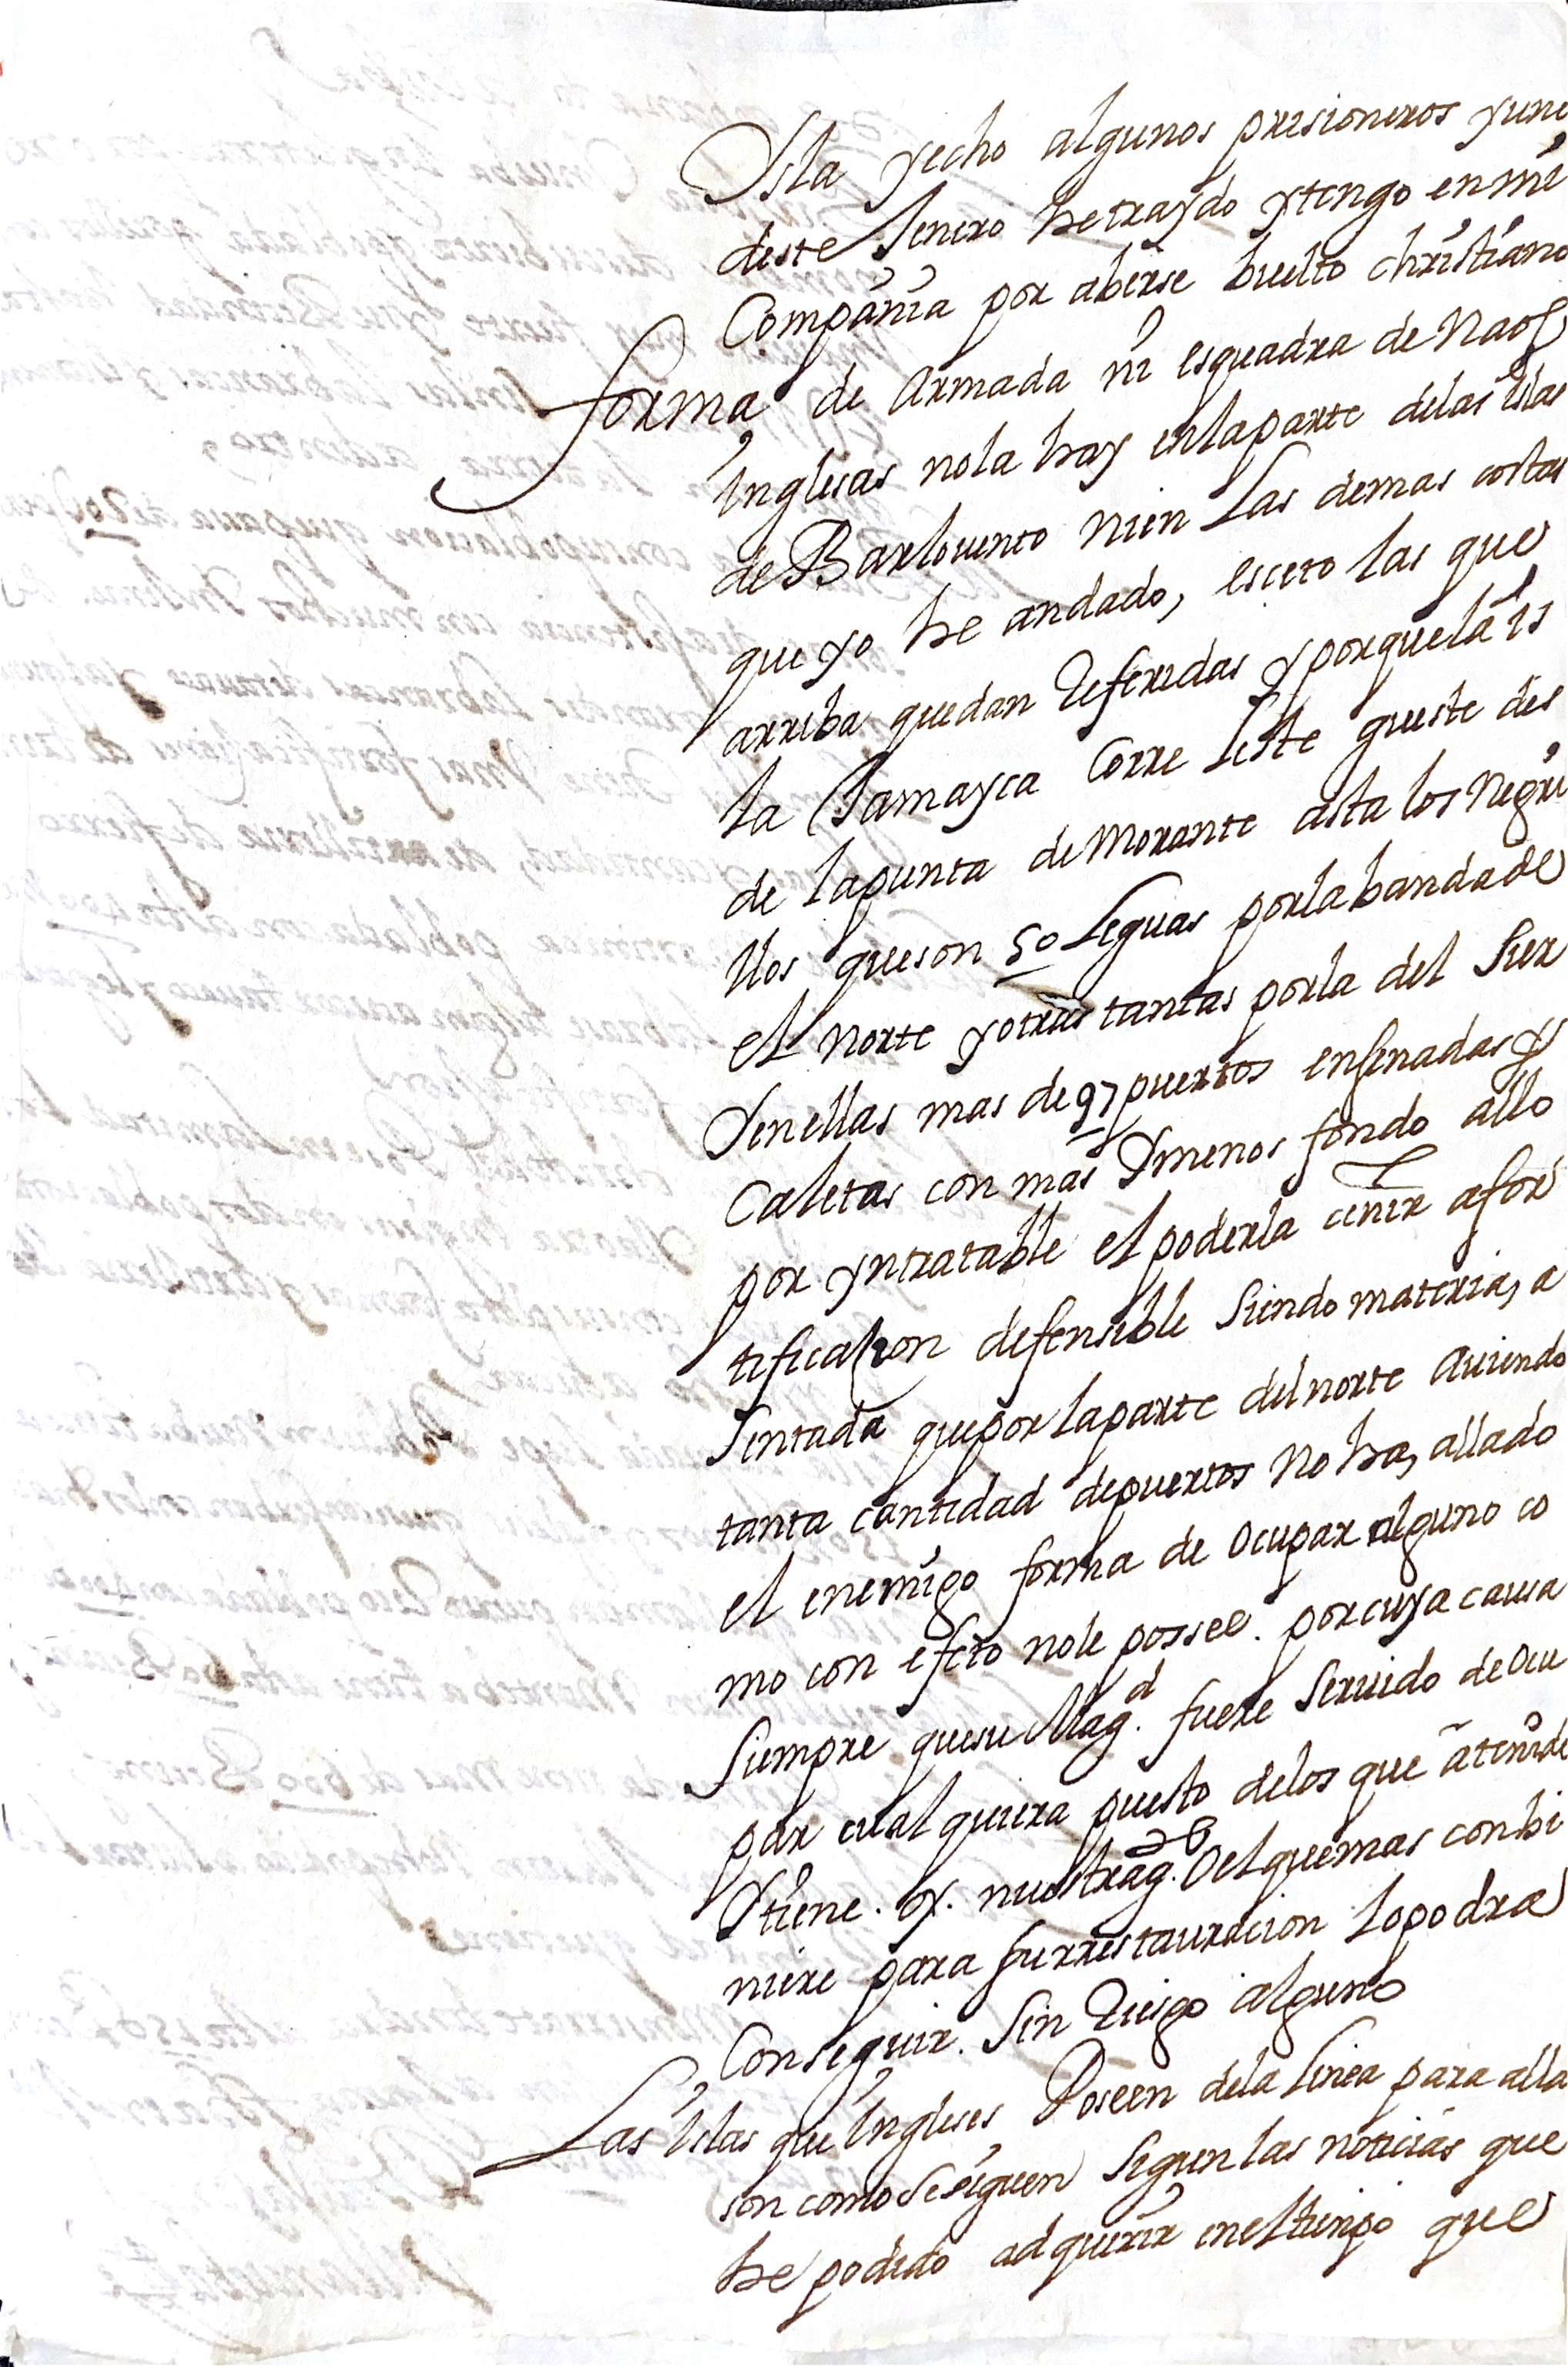 Ysla yecho algunos prisioneros yuno
deste Jenero he traydo ytengo en mi
Compañia por aberse buelto christiano
forma de Armada ni esquadra de Naos
Inglesas nola hay enlaparte delas islas
de Barlouento nien Las demas costas
que yo he andado, esceto las que
arriba quedan Referidas yporquela is
la Jamayca Corre Leste gueste des
de lapunta de Morante asta los Negri
llos queson 50 Leguas porla banda de
el Norte yotras tantas porla del Sur
Yenellas mas de 97 puertos ensenadas y
Caletas con mas Ymenos fondo allo
por yntratable el poderla ceñir afor
tificacion defensible Siendo materia, a
Sentada quepor laparte del norte Auiendo
tanta cantidad depuertos No ha, allado
el enemigo forma de Ocupar alguno co
mo con efeto nole possee. porcuya causa
Siempre quesu Mag.d fuere Seruido de Ocu
par cualquiera puesto delos que a tenido
Ytiene. oy. nuestra Oelquemas conbi
niere para surrestauracion Lopodra
Conseguir. Sin Riesgo alguno
Las Islas que Ingleses Poseen dela Linea para alla
son como Sesiguen Segun las noticias que
he podido adquirir eneltiempo que